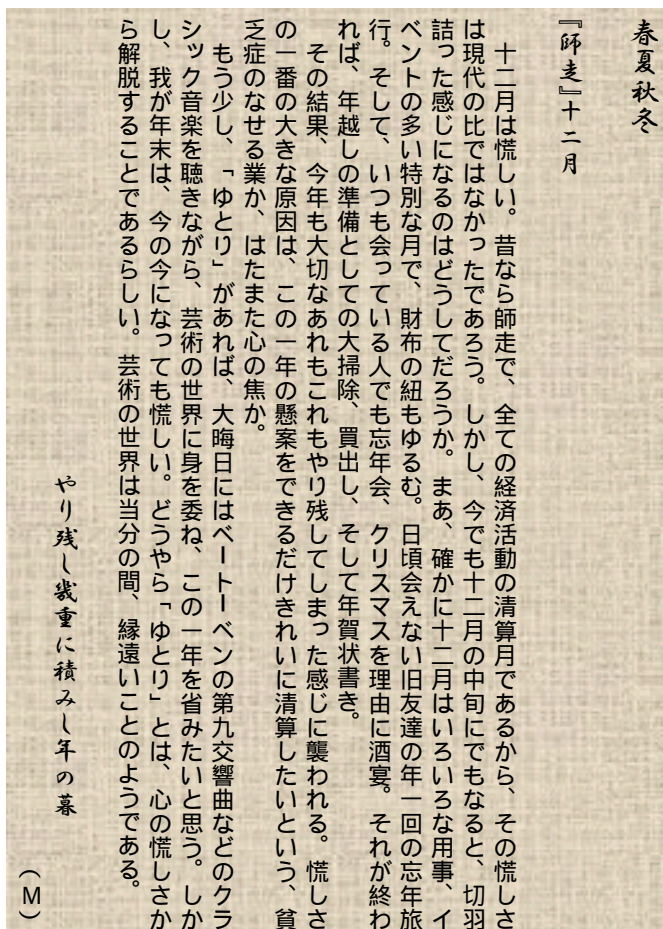 春夏秋冬
『師走』十二月
　十二月は慌しい。昔なら師走で、全ての経済活動の清算月であるから、その慌しさ
は現代の比ではなかったであろう。しかし、今でも十二月の中旬にでもなると、切羽
詰った感じになるのはどうしてだろうか。まあ、確かに十二月はいろいろな用事、イ
ベントの多い特別な月で、財布の紐もゆるむ。日頃会えない旧友達の年一回の忘年旅
行。そして、いつも会っている人でも忘年会、クリスマスを理由に酒宴。それが終わ
れば、年越しの準備としての大掃除、買出し、そして年賀状書き。
　その結果、今年も大切なあれもこれもやり残してしまった感じに襲われる。慌しさ
の一番の大きな原因は、この一年の懸案をできるだけきれいに清算したいという、貧
乏症のなせる業か、はたまた心の焦か。
　もう少し、「ゆとり」があれば、大晦日にはベートーベンの第九交響曲などのクラ
シック音楽を聴きながら、芸術の世界に身を委ね、この一年を省みたいと思う。しか
し、我が年末は、今の今になっても慌しい。どうやら「ゆとり」とは、心の慌しさか
ら解脱することであるらしい。芸術の世界は当分の間、縁遠いことのようである。
やり残し幾重に積みし年の暮
（Ｍ）